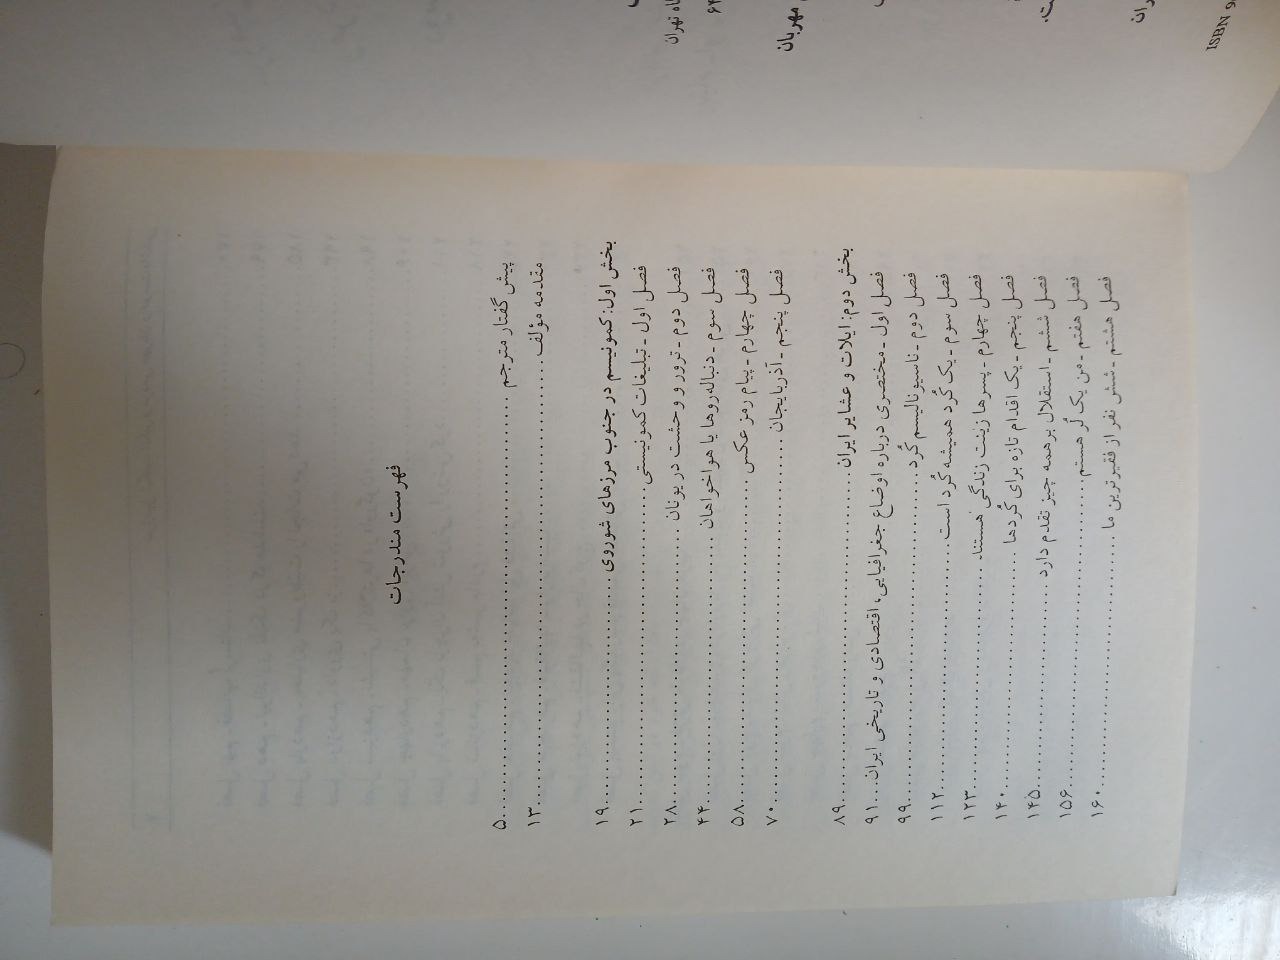 مهربان
ISBN
فهرست مندرجات
پیش گفتار مترجم ........ ۵
مقدمه مؤلف ........ ۱۳
بخش اول: کمونیسم در جنوب مرزهای شوروی ........ ۱۹
فصل اول ـ تبلیغات کمونیستی ........ ۲۱
فصل دوم ـ ترور و وحشت در یونان ........ ۲۸
فصل سوم ـ دنباله‌روها یا هواخواهان ........ ۴۴
فصل چهارم ـ پیام رمز عکس ........ ۵۸
فصل پنجم ـ آذربایجان ........ ۷۰
بخش دوم: ایلات و عشایر ایران ........ ۸۹
فصل اول ـ مختصری درباره اوضاع جغرافیایی، اقتصادی و تاریخی ایران .... ۹۱
فصل دوم ـ ناسیونالیسم کُرد ........ ۹۹
فصل سوم ـ یک کُرد همیشه کُرد است ........ ۱۱۲
فصل چهارم ـ پسرها زینت زندگی هستند ........ ۱۲۳
فصل پنجم ـ یک اقدام تازه برای کُردها ........ ۱۴۰
فصل ششم ـ استقلال بر همه چیز تقدم دارد ........ ۱۴۵
فصل هفتم ـ من یک لُر هستم ........ ۱۵۶
فصل هشتم ـ شش نفر از فقیرترین ما ........ ۱۶۰